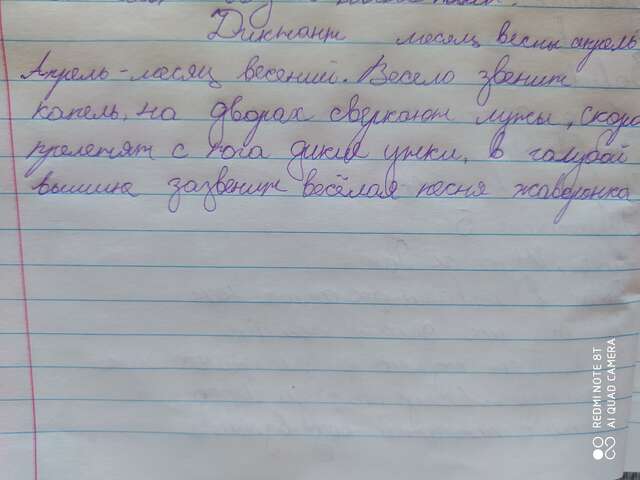 Диктант месяц весны апрель
Апрель-месяц весений. Весело звенит
капель, на дворах сверкают лужы, скоро
прелетят с юга дикие утки, в голубой
вышине зазвенит весёлая песня жаворонка
REDMI NOTE 8T
AI QUAD CAMERA